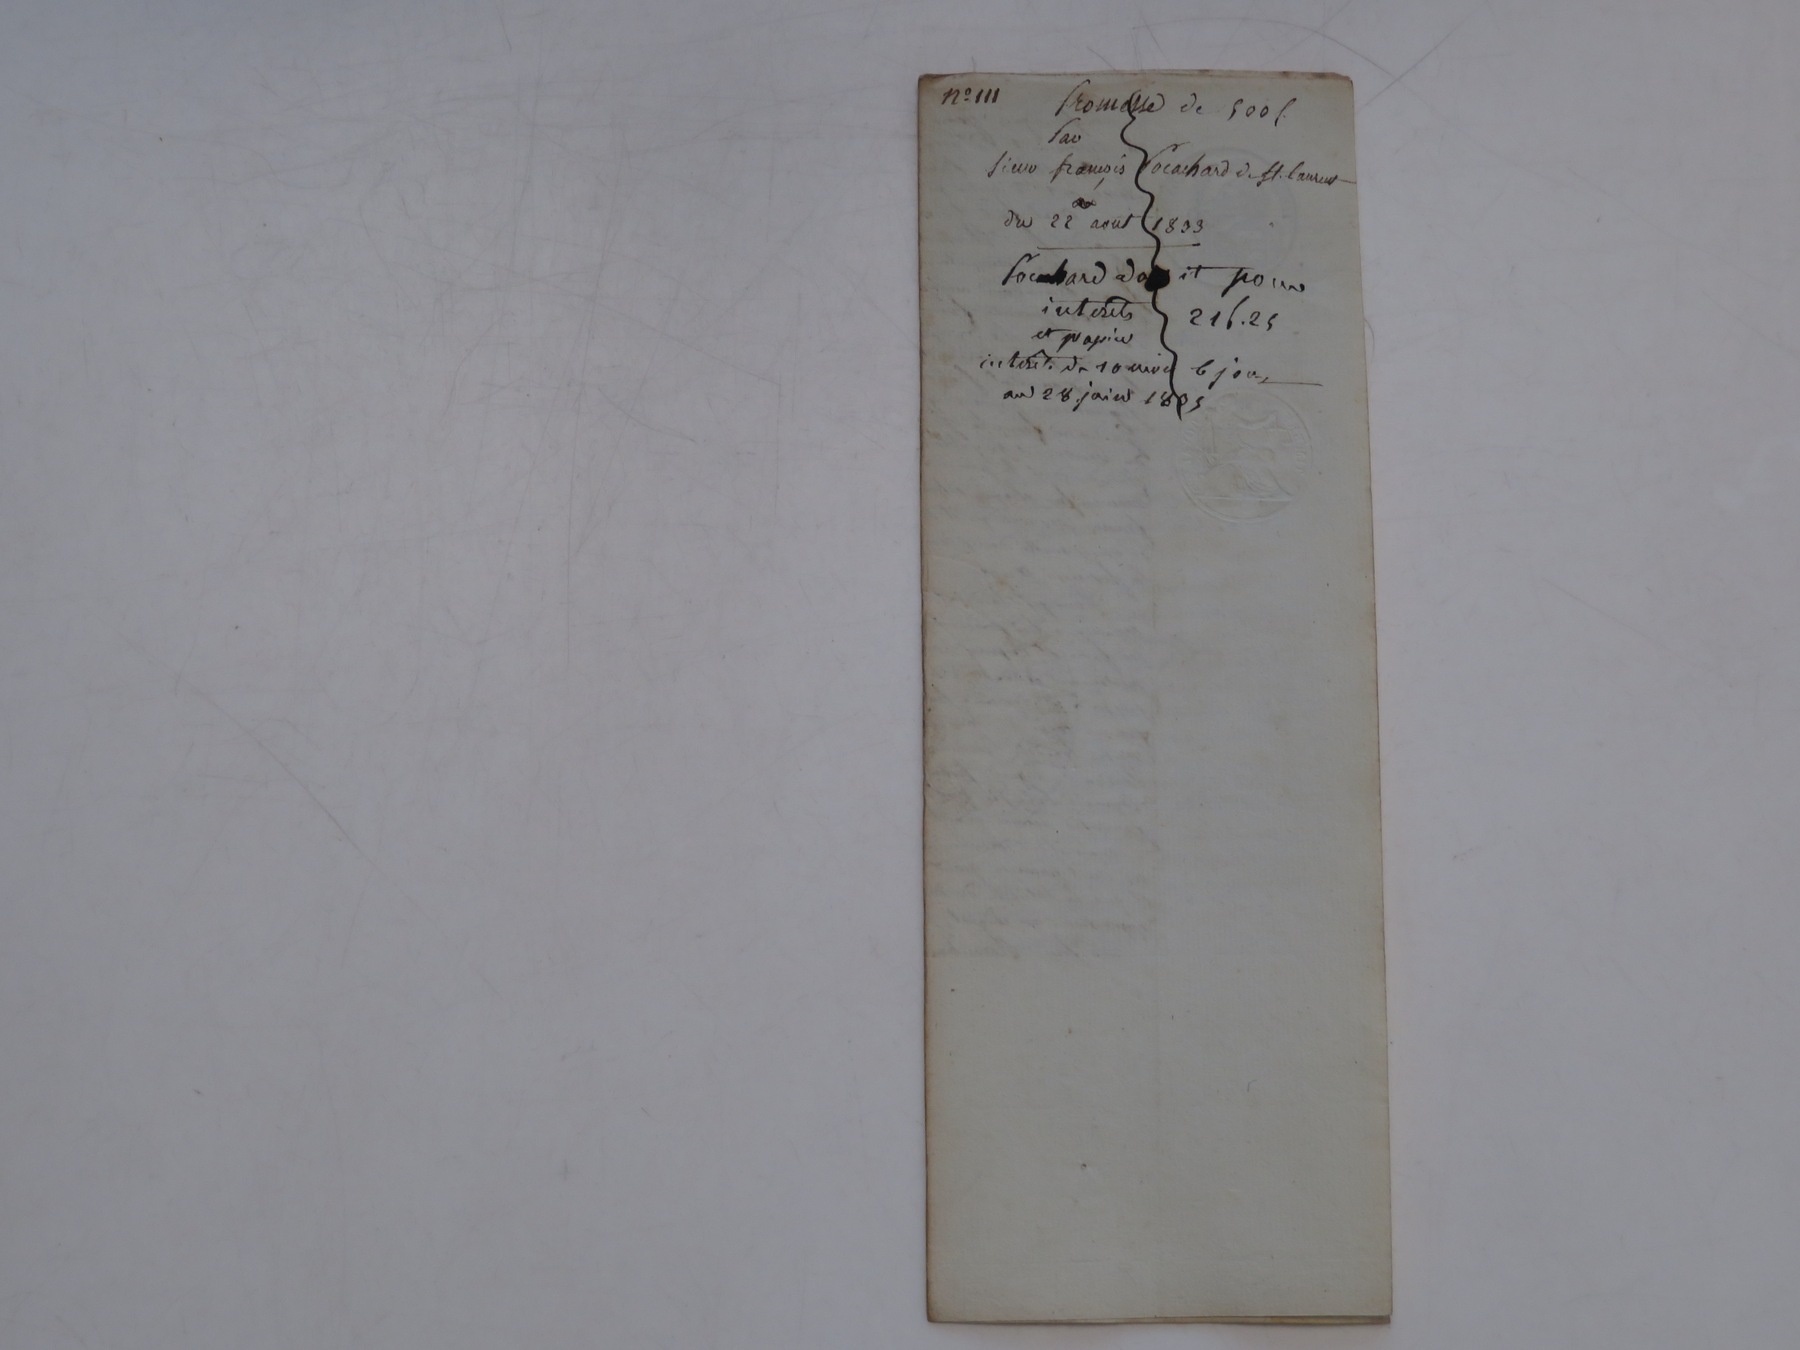 N° 111
Promesse de 500 f.
Par
sieur françois Pocachard de St. Laurent
du 22 aout 1803
Pocachard doit pour
interets 216.25
et papier
interet de 10 mois 6 jours
au 28 juin 1805